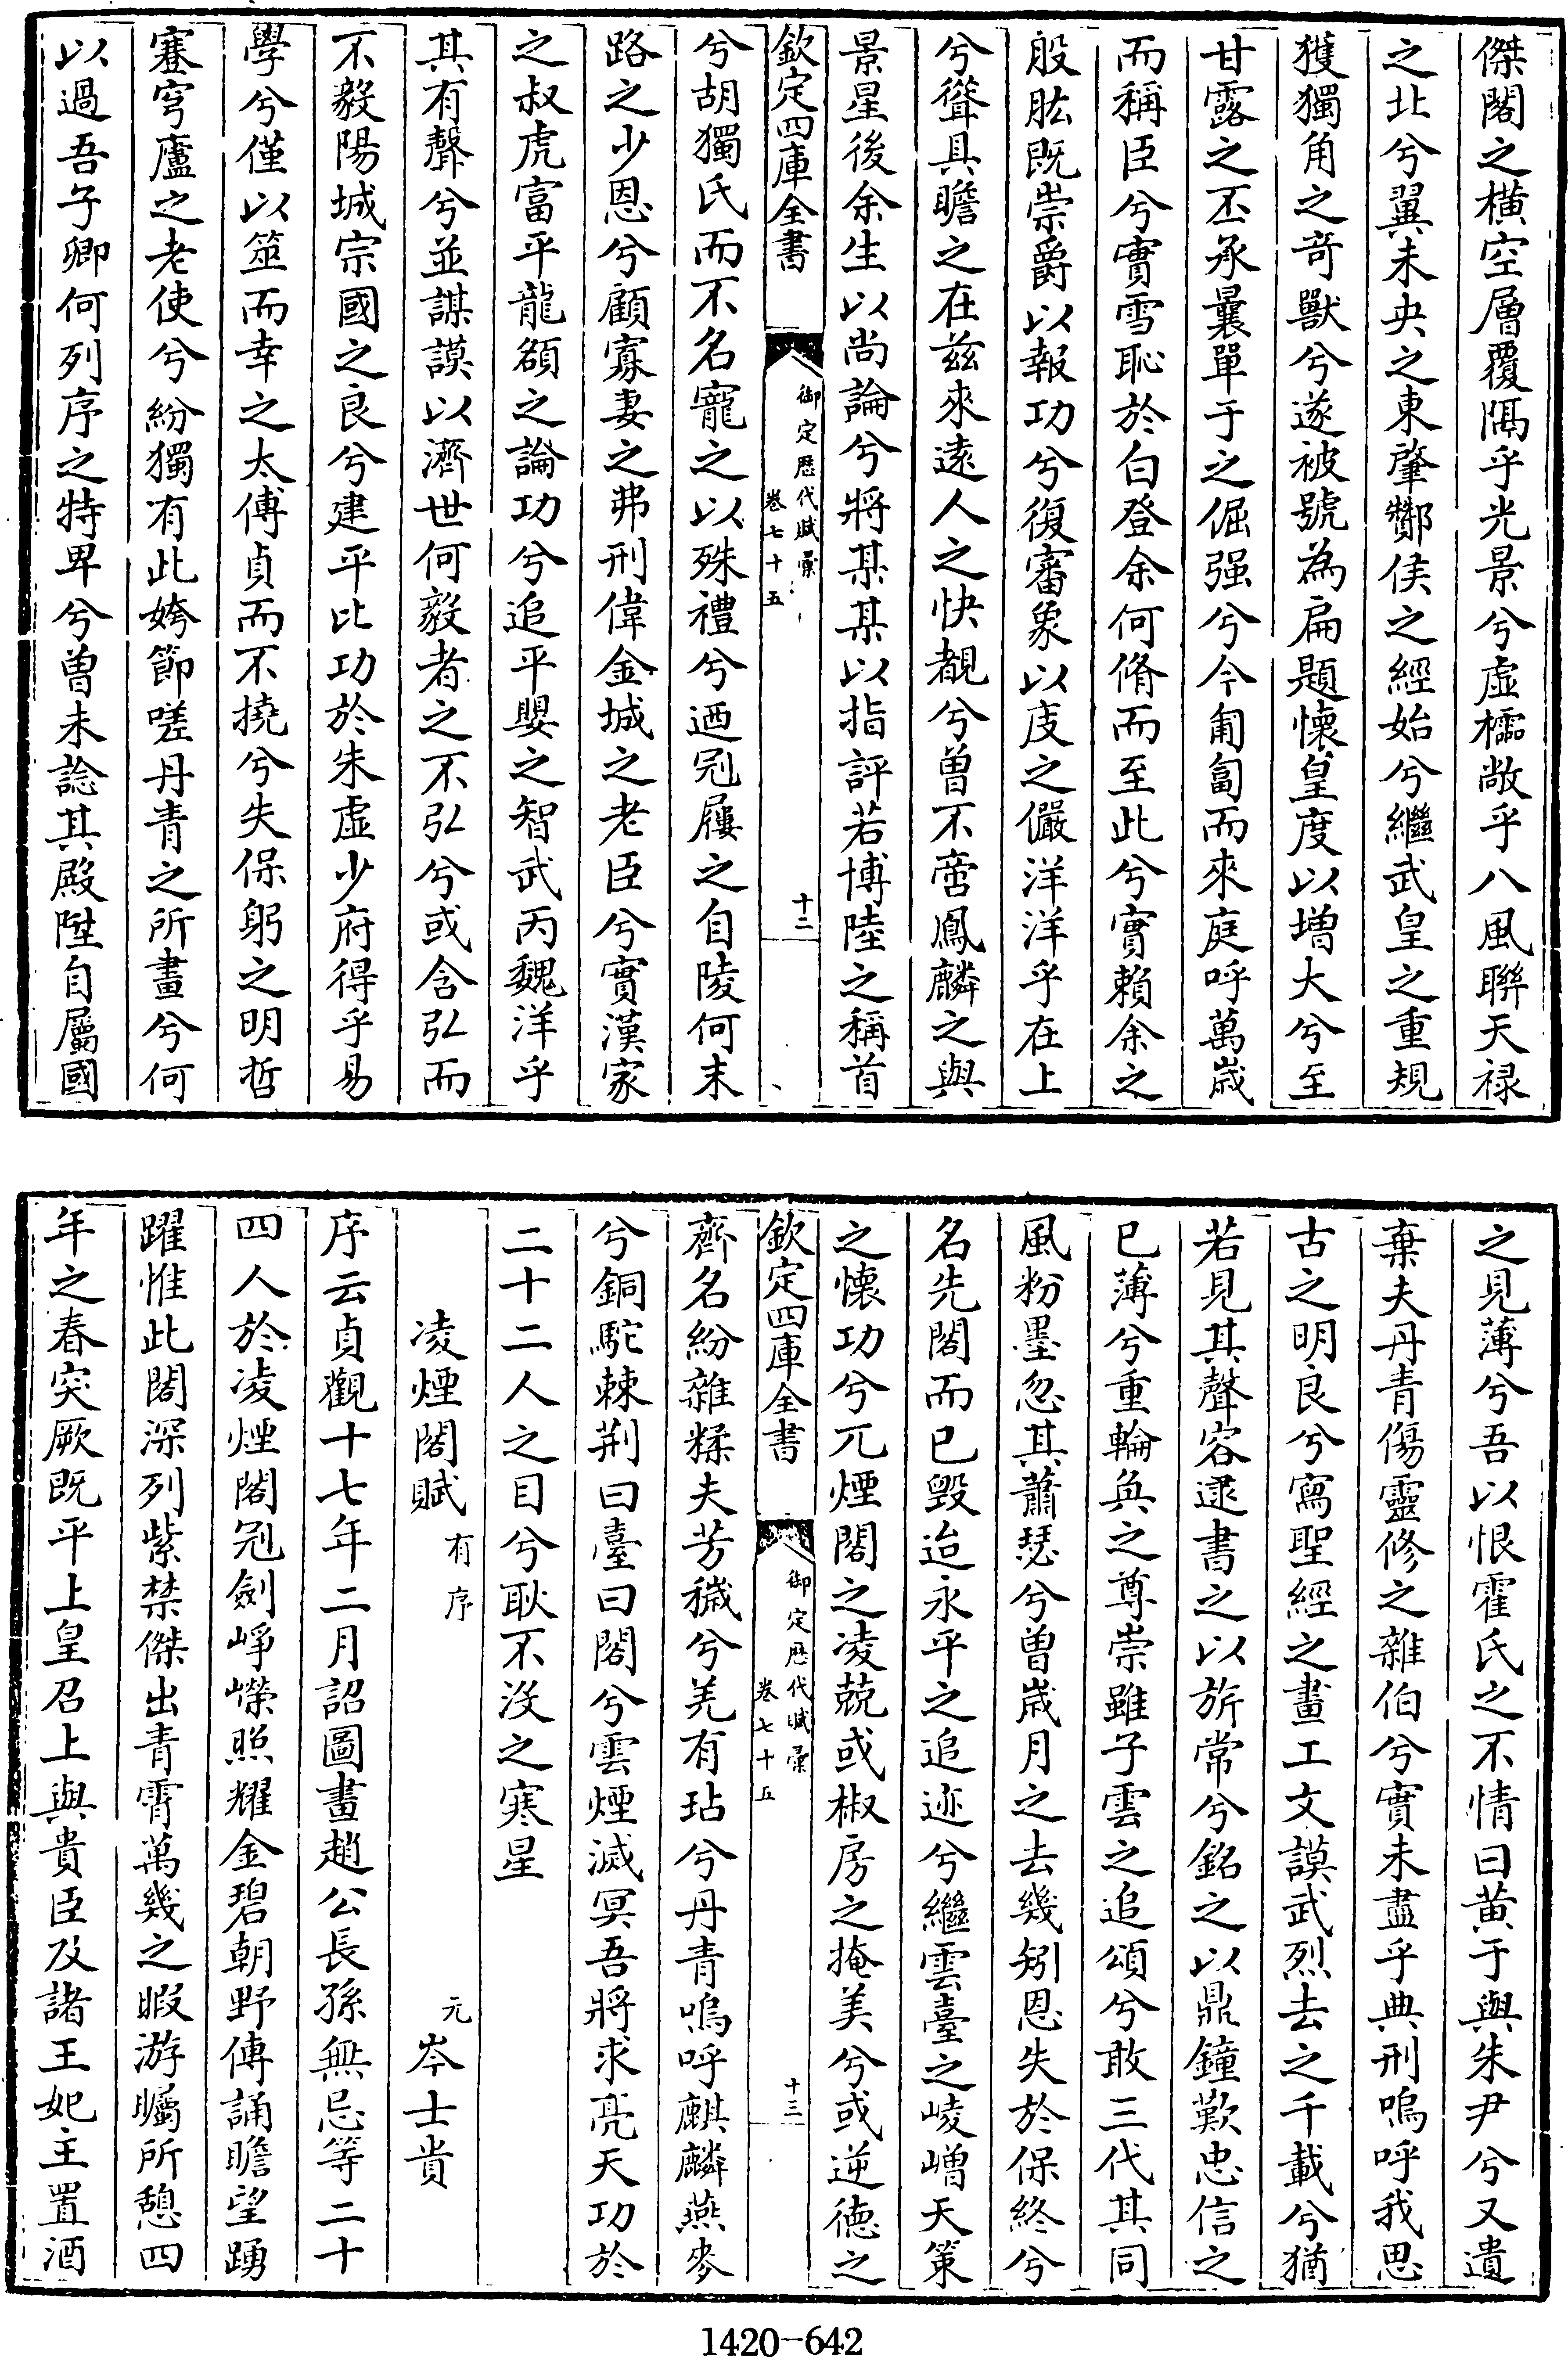 傑閣之横空層覆隅乎光景兮虛櫺敞乎八風聯天禄
之北兮翼未央之東肇酇侯之經始兮繼武皇之重規
獲獨角之竒獸兮遂被號為扁題懷皇度以增大兮至
甘露之丕承曩單于之倔强兮今匍匐而來庭呼萬歳
而稱臣兮實雪恥於白登余何脩而至此兮實賴余之
股肱既崇爵以報功兮復審象以庋之儼洋洋乎在上
兮聳具瞻之在兹來逺人之快覩兮曽不啻鳳麟之與
景星後余生以尚論兮將某某以指評若博陸之稱首
欽定四庫全書
御定歴代賦彚
卷七十五
十二
兮胡獨氏而不名寵之以殊禮兮迺冠屨之自陵何末
路之少恩兮顧寡妻之弗刑偉金城之老臣兮實漢家
之叔虎富平龍頟之論功兮追平嬰之智武丙魏洋乎
其有聲兮並謀謨以濟世何毅者之不弘兮或含弘而
不毅陽城宗國之良兮建平比功於朱虛少府得乎易
學兮僅以筮而幸之太傅貞而不撓兮失保躬之明哲
蹇穹廬之老使兮紛獨有此姱節嗟丹青之所畫兮何
以過吾子卿何列序之特卑兮曽未諗其殿陞自屬國
之見薄兮吾以恨霍氏之不情曰黄于與朱尹兮又遺
棄夫丹青傷靈修之雜伯兮實未盡乎典刑嗚呼我思
古之明良兮寫聖經之畫工文謨武烈去之千載兮猶
若見其聲容逮書之以旂常兮銘之以鼎鐘歎忠信之
已薄兮重輪奐之尊崇雖子雲之追頌兮敢三代其同
風粉墨忽其蕭瑟兮曽歳月之去幾矧恩失於保終兮
名先閣而已毀迨永平之追迹兮繼雲臺之崚嶒天策
之懷功兮兀煙閣之凌兢或椒房之掩美兮或逆徳之
欽定四庫全書
御定歴代賦彚
卷七十五
十三
齊名紛雜糅夫芳穢兮羌有玷兮丹青嗚呼麒麟燕麥
兮銅駝棘荆曰臺曰閣兮雲煙滅冥吾將求亮天功於
二十二人之目兮耿不沒之寒星
凌煙閣賦 有序 元 岑士貴
序云貞觀十七年二月詔圖畫趙公長孫無忌等二十
四人於凌煙閣冠劍崢嶸照耀金碧朝野傳誦瞻望踴
躍惟此閣深列紫禁傑出青霄萬幾之暇游矚所憩四
年之春突厥既平上皇召上與貴臣及諸王妃主置酒
1420-642